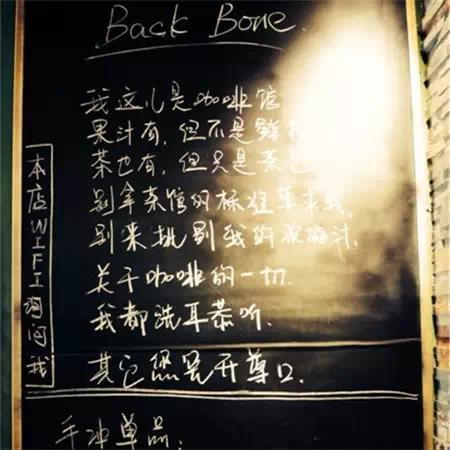 Back Bone.
我这儿是咖啡馆
果汁有,但不是鲜
茶也有,但只是茶
别拿茶馆的标准要求我.
别来挑剔我的 汁.
关于咖啡的一切.
我都洗耳恭听.
其它 免开尊口.
本店WIFI询问我
手冲单品: